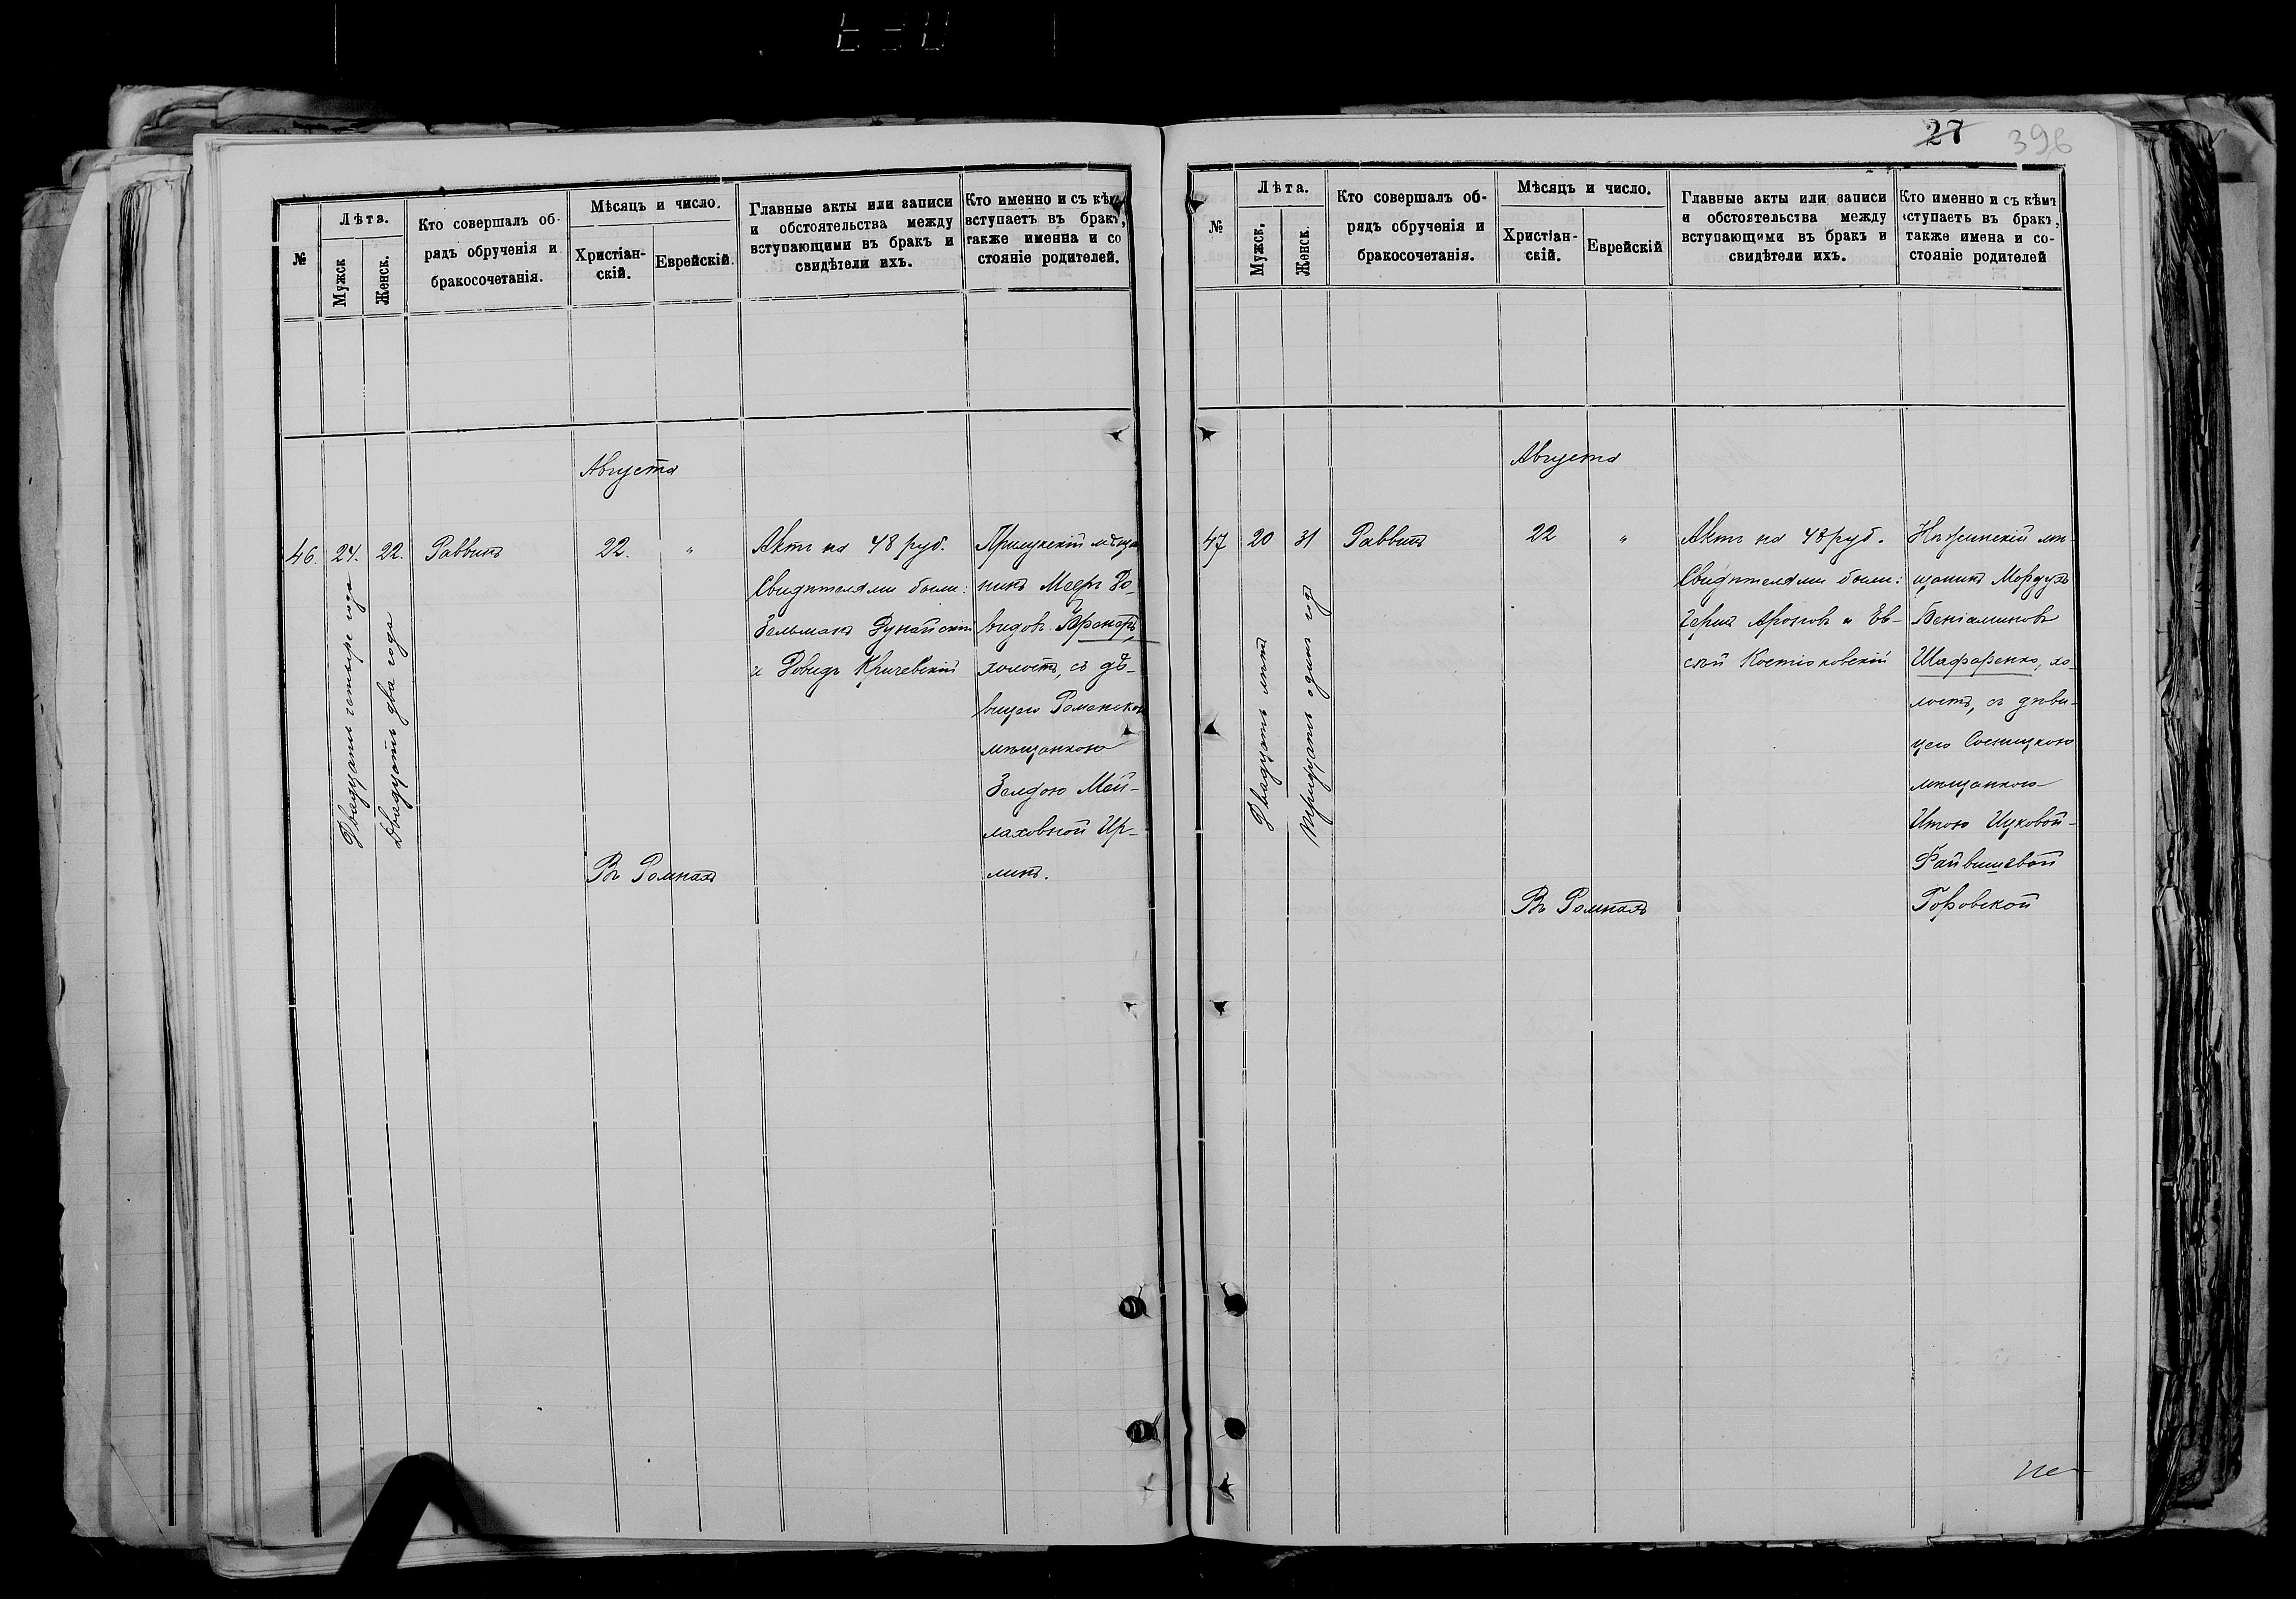 №
Лѣта.
Мужск
Женск.
Кто совершалъ об-
рядъ обрученія и
бракосочетанія.
Мѣсяцъ и число.
Христіан-
скій.
Еврейскій.
Главные акты или записи
и обстоятельства между
вступающими въ бракъ и
свидѣтели ихъ.
Кто именно и съ кѣмъ
вступаетъ въ бракъ,
также именна и со
стояніе родителей.
Августа
46.
24.
Двадцать четыре года
22.
Двадцать два года
Раввинъ
22.
"
Въ Ромнахъ
Актъ на 48 руб.
Свидѣтелями были:
Зельманъ Дунайскій
и Довидъ Кричевскій
Прилукскій мѣща
нинъ Мееръ До-
видовъ
холостъ, съ дѣ-
вицею Роменскою
мѣщанкою
Зелдою Мей-
лаховной Ир-
линъ.
27
396
№
Лѣта.
Мужск.
Женск.
Кто совершалъ об-
рядъ обрученія и
бракосочетанія.
Мѣсяцъ и число.
Христіан-
скій.
Еврейскій
Главные акты или записи
и обстоятельства между
вступающими въ бракъ и
свидѣтели ихъ.
Кто именно и съ кѣмъ
вступаетъ въ бракъ,
также имена и со-
стояніе родителей
Августа
47
20
Двадцать лѣтъ
31
Тридцать одинъ годъ
Раввинъ
22
"
Въ Ромнахъ
Актъ на 48 руб.
Свидѣтелями были:
Ароновъ и Ев-
сѣй Костюковскій
Нѣжинскій мѣ-
щанинъ Мордухъ
Беніаминовъ
Шафаренко, хо-
лостъ, съ дѣви-
цею Сосницкою
мѣщанкою
Итою Ицковой-
Файвишевой
Горовской